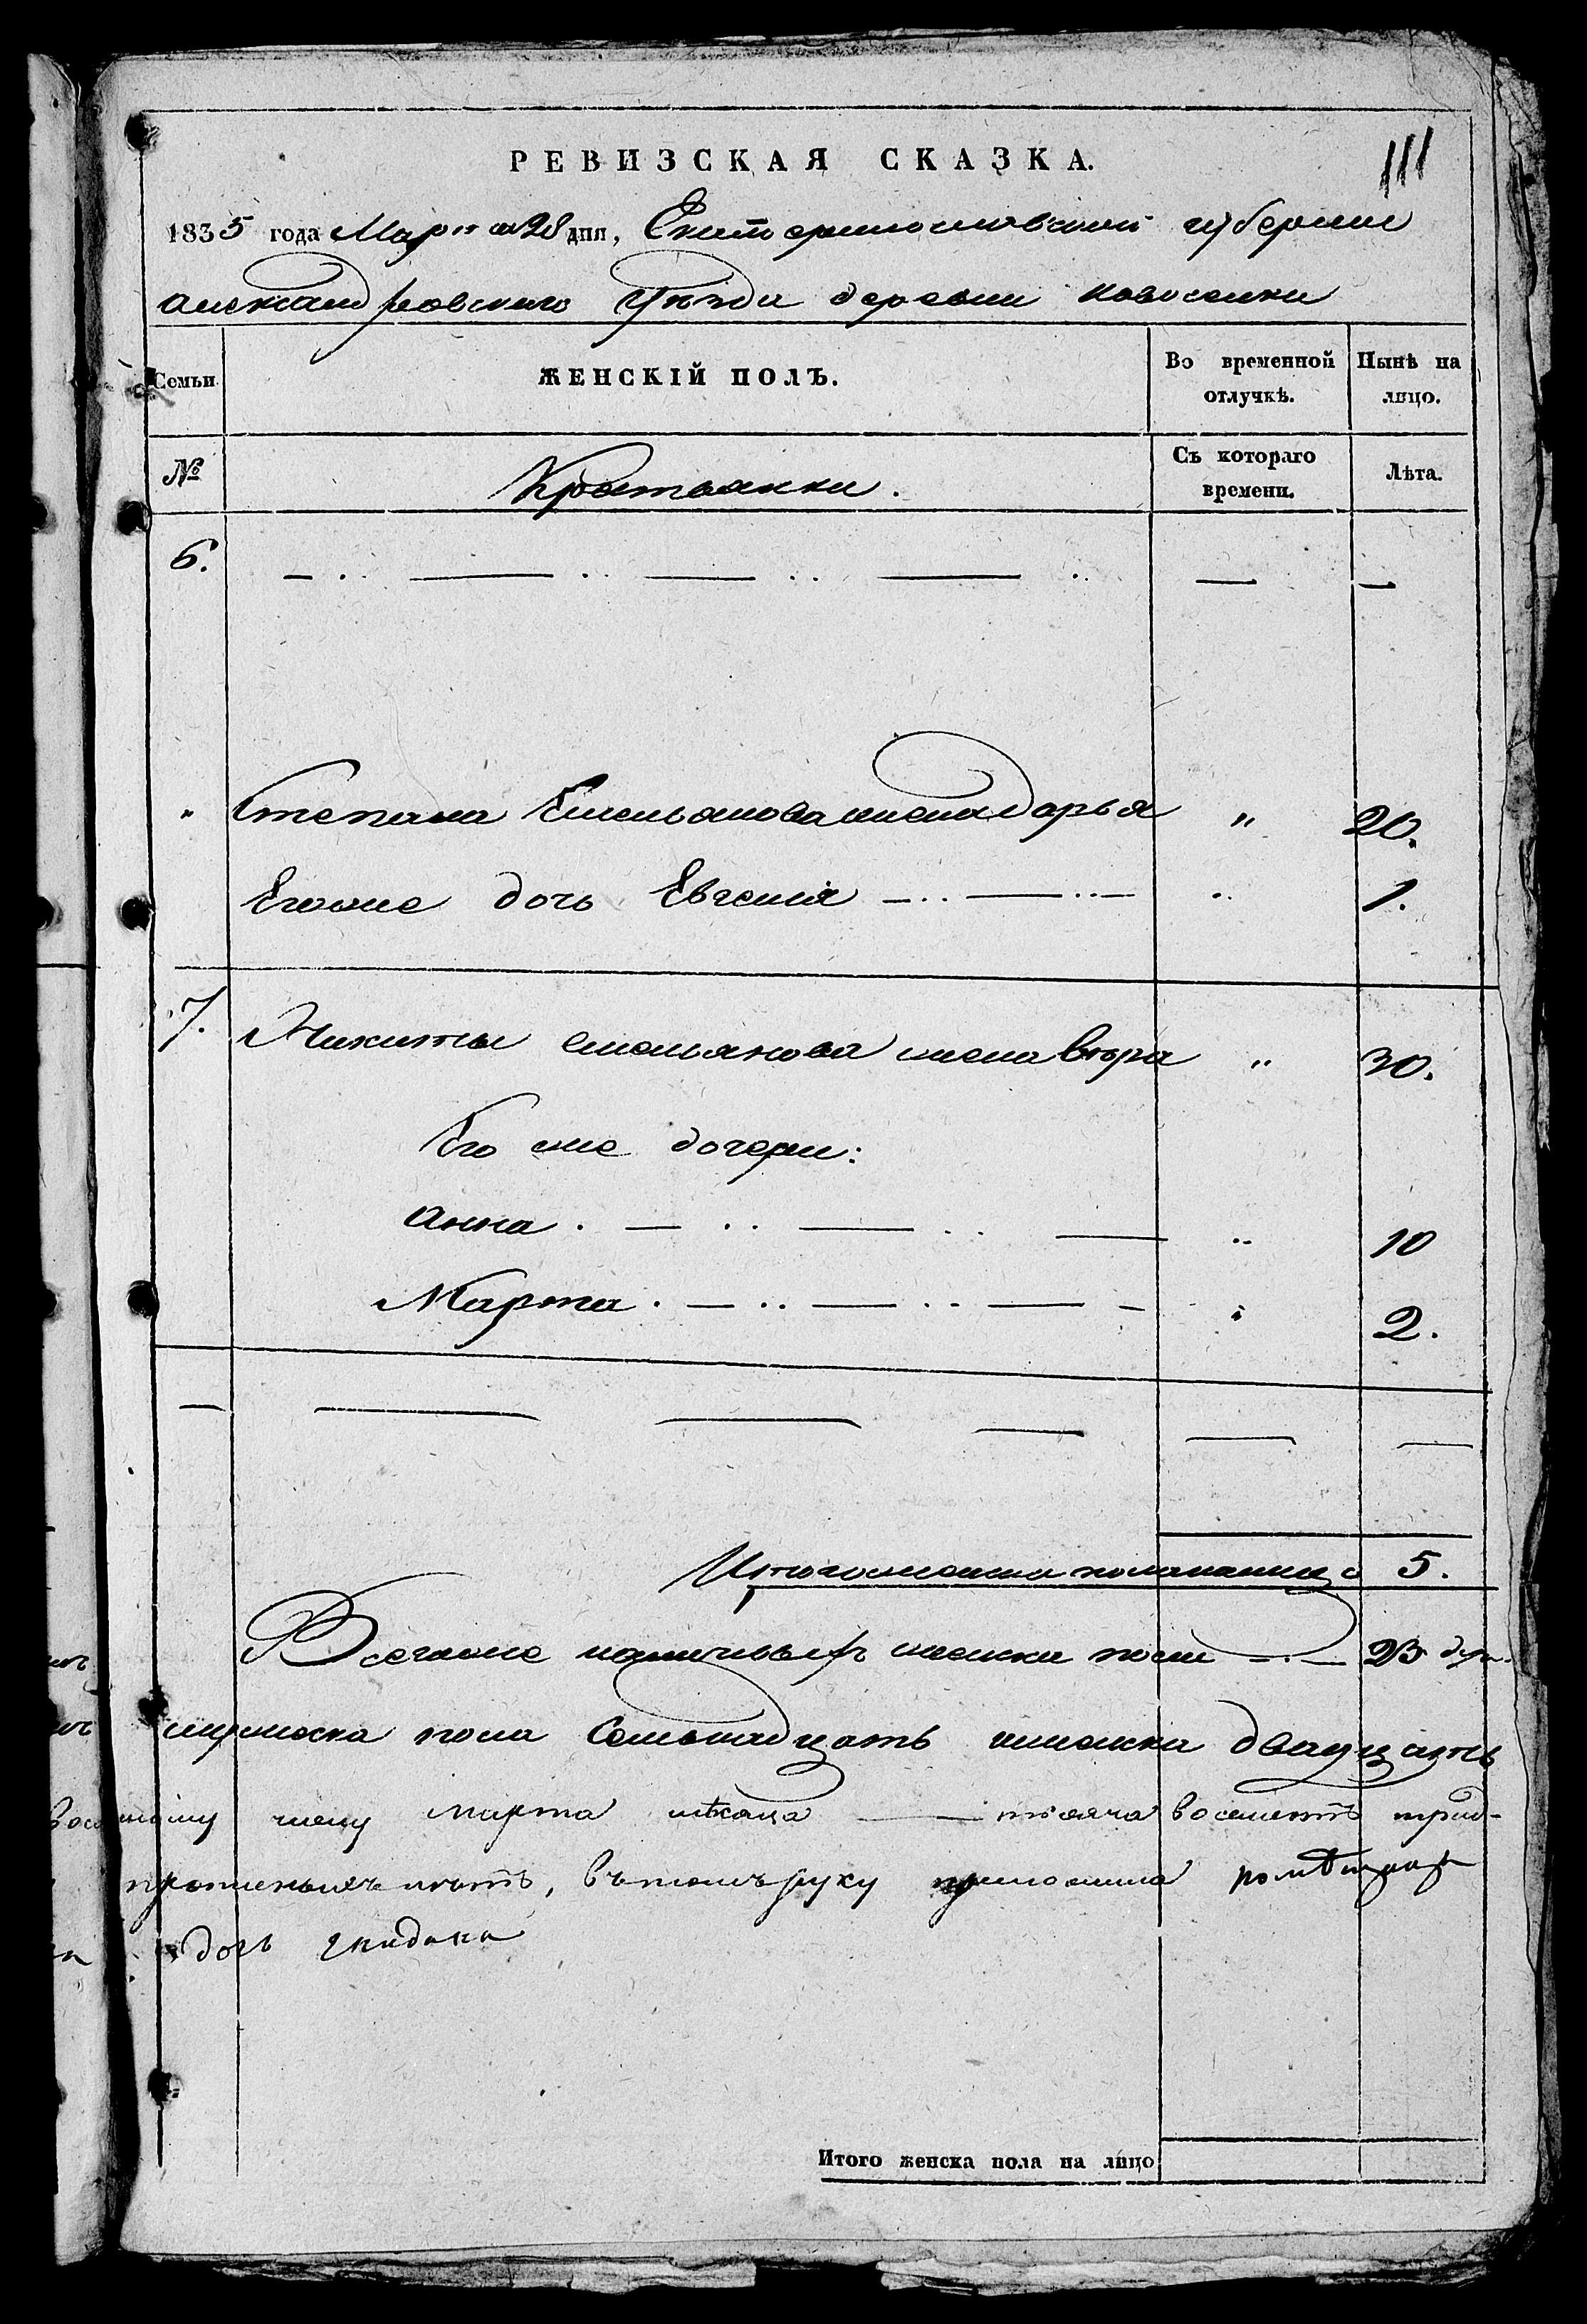 РЕВИЗСКАЯ СКАЗКА.
111
1835 года Марта 28 дня, Екатеринославской губернии
александровского Уѣзда деревни новоселки
Семьи
ЖЕНСКІЙ ПОЛЪ.
Во временной отлучкѣ.
Нынѣ на лицо.
№
Крестьянки.
Съ котораго времени.
Лѣта.
6.
" Степана Емельянова жена дарья " 20.
Егоже дочь Евгенія 1.
7. Никиты емельянова жена вѣра " 30.
Его же дочери:
анна 10
Марта 2.
Итого женска пола налицо 5.
Всегоже наличныхъ женска пола 23 душ.
мужеска пола Семьнадцать женска двадцать
марта мѣсяца тысяча восемьсотъ трид-
вътомъ руку приложила
дочь
Итого женска пола на лицо